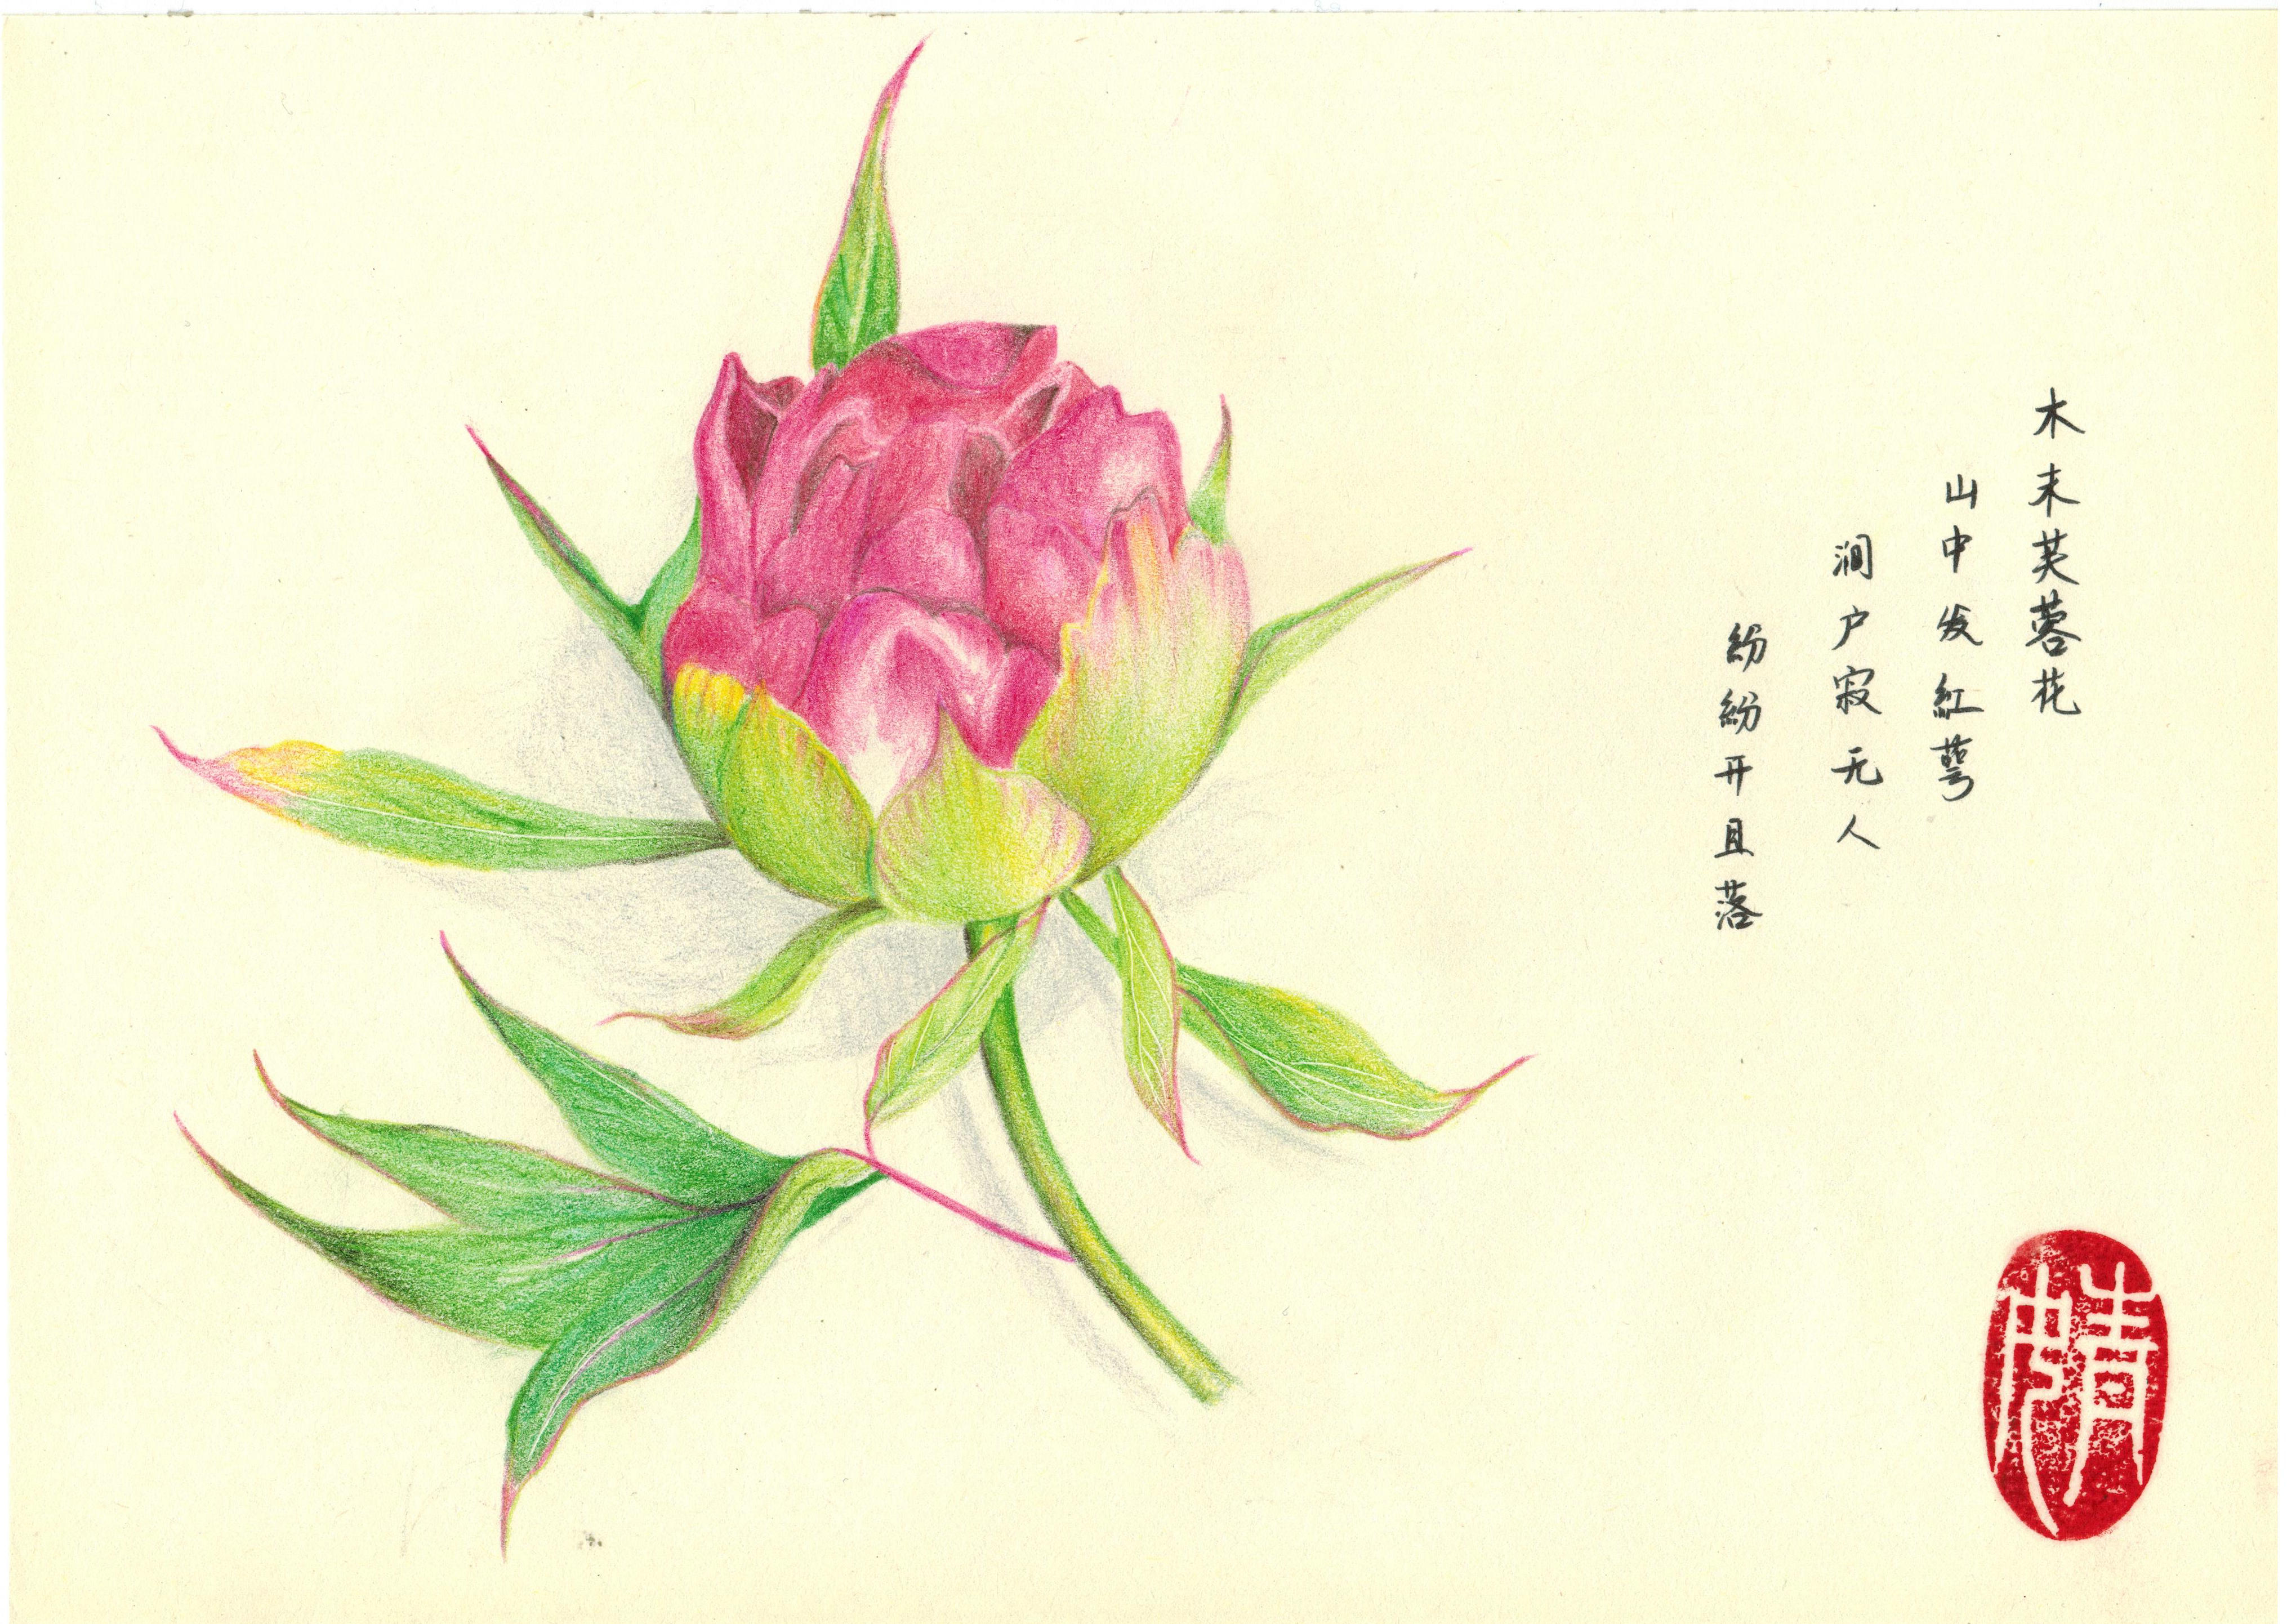 木末芙蓉花
山中发紅萼
涧户寂无人
紛紛开且落